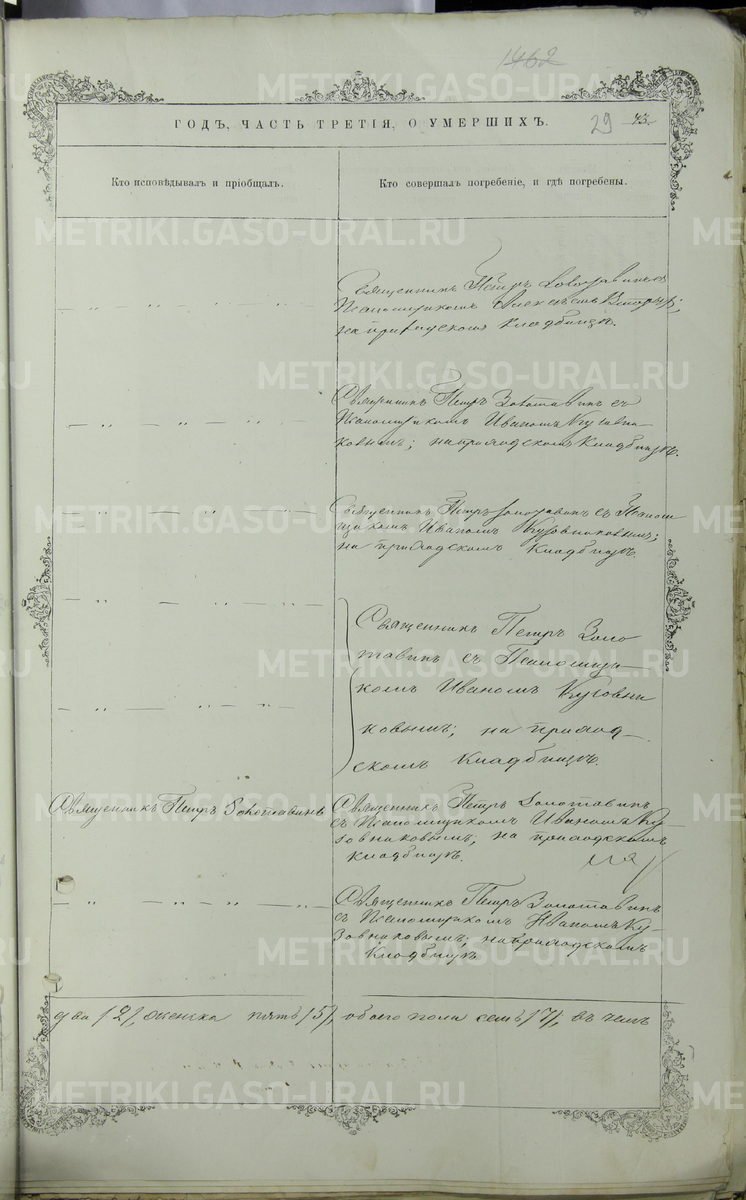 1462
ГОДЪ, ЧАСТЬ ТРЕТІЯ, О УМЕРШИХЪ.
29
Кто исповѣдывалъ и пріобщалъ.
Кто совершалъ погребеніе, и гдѣ погребены.
Священникъ Петръ Золотавинъ съ
Псаломщикомъ Алексѣемъ
на приходскомъ кладбищѣ.
Священникъ Петръ Золотавинъ съ
Псаломщикомъ Иваномъ Кузовни-
ковымъ; на приходскомъ кладбищѣ.
Священникъ Петръ Золотавинъ съ Псалом
щикомъ Иваномъ Кузовниковымъ;
на приходскомъ кладбищѣ.
Священникъ Петръ Золо
тавинъ съ Псаломщи-
комъ Иваномъ Кузовни
ковымъ; на приход-
скомъ кладбищѣ.
Священникъ Петръ Золотавинъ
Священникъ Петръ Золотавинъ
съ Псаломщикомъ Иваномъ Ку-
зовниковымъ; на приходскомъ
кладбищѣ.
Священникъ Петръ Золотавинъ
съ Псаломщикомъ Иваномъ Ку-
зовниковымъ; на приходскомъ
кладбищѣ
два /2/, женска пять /5/, обоего пола семь /7/, въ чемъ
METRIKI.GASO-URAL.RU